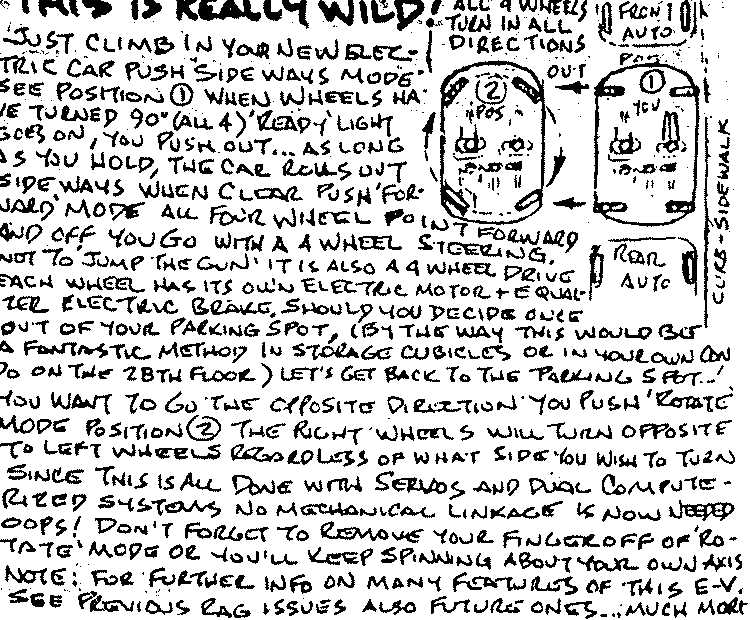 THIS IS REALLY WILD!
JUST CLIMB IN YOUR NEW ELEC-
TRIC CAR PUSH 'SIDE WAYS MODE'
SEE POSITION ① WHEN WHEELS HA-
VE TURNED 90° (ALL 4) 'READY' LIGHT
GOES ON, YOU PUSH OUT... AS LONG
AS YOU HOLD, THE CAR ROLLS OUT
SIDE WAYS WHEN CLEAR PUSH 'FOR-
WARD' MODE ALL FOUR WHEEL POINT FORWARD
AND OFF YOU GO WITH A 4 WHEEL STEERING.
NOT TO 'JUMP THE GUN' IT IS ALSO A 4 WHEEL DRIVE
EACH WHEEL HAS ITS OWN ELECTRIC MOTOR + EQUAL-
IZER ELECTRIC BRAKE. SHOULD YOU DECIDE ONCE
OUT OF YOUR PARKING SPOT, (BY THE WAY THIS WOULD BE
A FANTASTIC METHOD IN STORAGE CUBICLES OR IN YOUR OWN CON
DO ON THE 28TH FLOOR) LET'S GET BACK TO THE 'PARKING SPOT..'
YOU WANT TO GO THE OPPOSITE DIRECTION YOU PUSH 'ROTATE'
MODE POSITION ② THE RIGHT WHEELS WILL TURN OPPOSITE
TO LEFT WHEELS REGARDLESS OF WHAT SIDE YOU WISH TO TURN
SINCE THIS IS ALL DONE WITH SERVOS AND DUAL COMPUTE-
RIZED SYSTEMS NO MECHANICAL LINKAGE IS NOW NEEDED
OOPS! DON'T FORGET TO REMOVE YOUR FINGER OFF OF 'RO-
TATE' MODE OR YOU'LL KEEP SPINNING ABOUT YOUR OWN AXIS
NOTE: FOR FURTHER INFO ON MANY FEATURES OF THIS E-V.
SEE PREVIOUS RAG ISSUES ALSO FUTURE ONES... MUCH MORE
ALL 4 WHEELS
TURN IN ALL
DIRECTIONS
OUT
②
POS
FRONT
AUTO
POS
①
YOU
REAR
AUTO
CURB-SIDEWALK